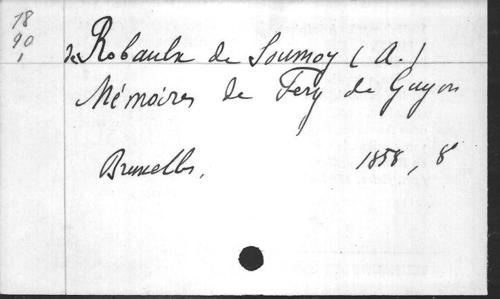 78
90
1
de Robaulx de Soumoy (A.)
Mémoires de Fery de Guyon
Bruxelles, 1858, 8°